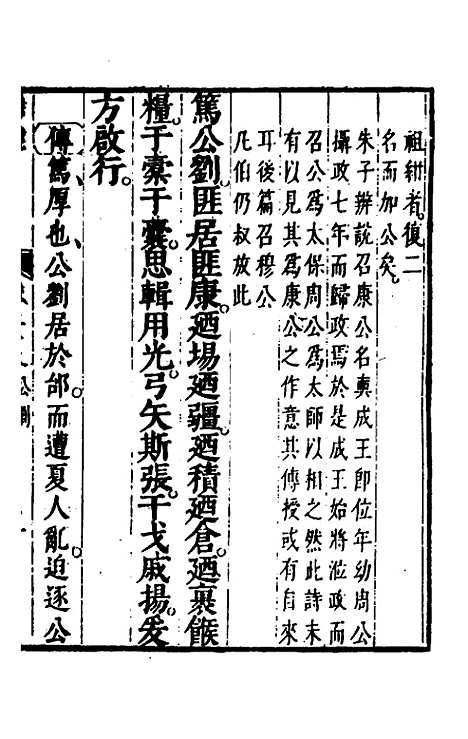 祖紺者。復二
名而加公矣。
朱子辨說召康公名奭成王即位年幼周公
攝政七年而歸政焉於是成王始將涖政而
召公爲太保周公爲太師以相之然此詩未
有以見其爲康公之作意其傳授或有自來
耳後篇召穆公
凡伯仍叔放此
篤公劉。匪居匪康。廼場廼疆。廼積廼倉。廼裹餱
糧。于橐于囊。思輯用光。弓矢斯張。干戈戚揚。爰
方啟行。
傳篤厚也、公劉居於邰。而遭夏人亂。迫逐公